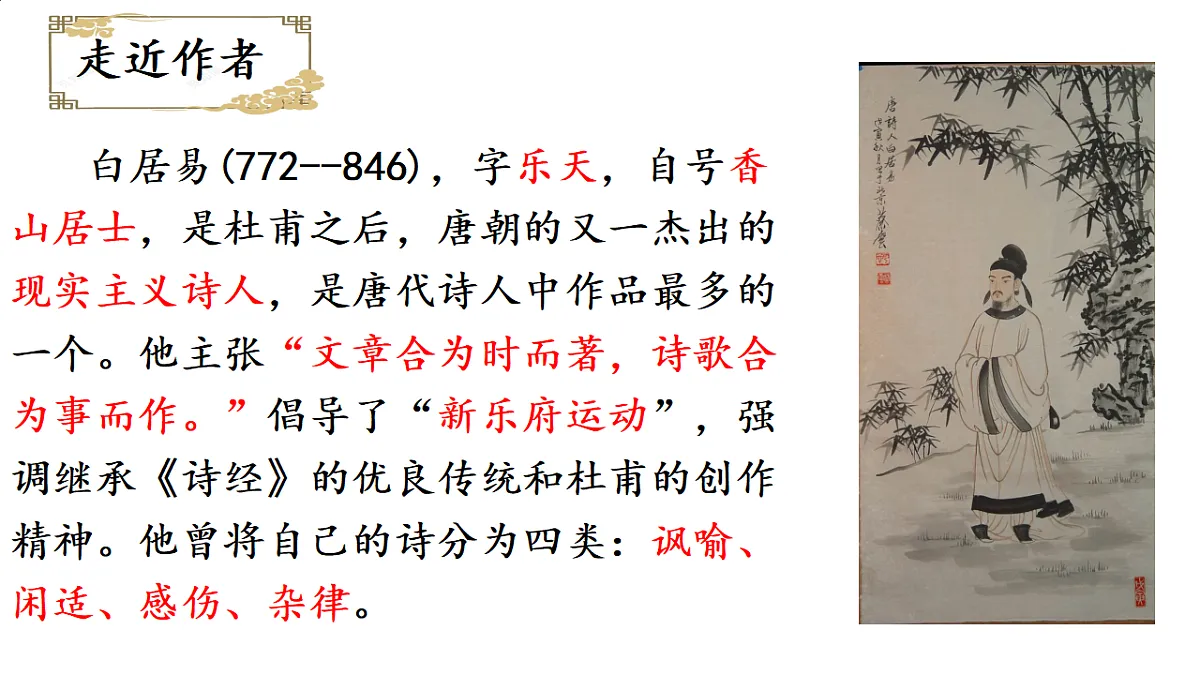 走近作者
白居易(772--846)，字乐天，自号香
山居士，是杜甫之后，唐朝的又一杰出的
现实主义诗人，是唐代诗人中作品最多的
一个。他主张“文章合为时而著，诗歌合
为事而作。”倡导了“新乐府运动”，强
调继承《诗经》的优良传统和杜甫的创作
精神。他曾将自己的诗分为四类：讽喻、
闲适、感伤、杂律。
唐詩人白居易